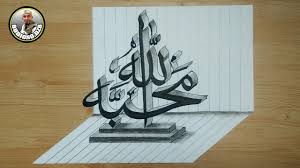 محبة الله